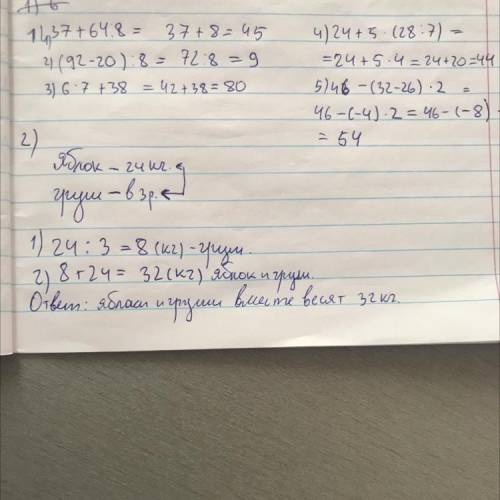 1) 1) 37+64:8 = 37+8=45
2) (92-20):8 = 72:8 = 9
3) 6·7+38 = 42+38=80
4) 24+5·(28:7) =
=24+5·4=24+20=44
5) 46-(32-26)·2 =
46-(-4)·2=46-(-8)
= 54
2)
Яблок - 24кг.
груш - в 3р.
1) 24:3=8(кг)-груш.
2) 8+24= 32(кг) яблок и груш.
Ответ: яблаки и груши вместе весят 32кг.